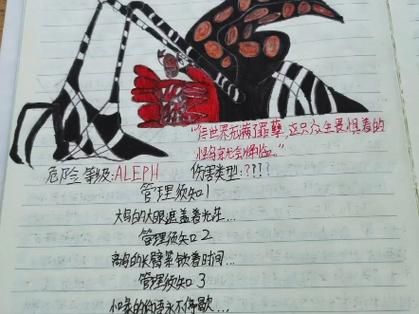 "待世界充满了罪孽,这只众生最惧着的
怪鸟就会降临。"
危险等级:ALEPH 伤害类型:????
管理须知1
大鸟的大眼遮盖着光…
管理须知2
高鸟的长臂禁锁着时间…
管理须知3
小喙的细语永不停歇…